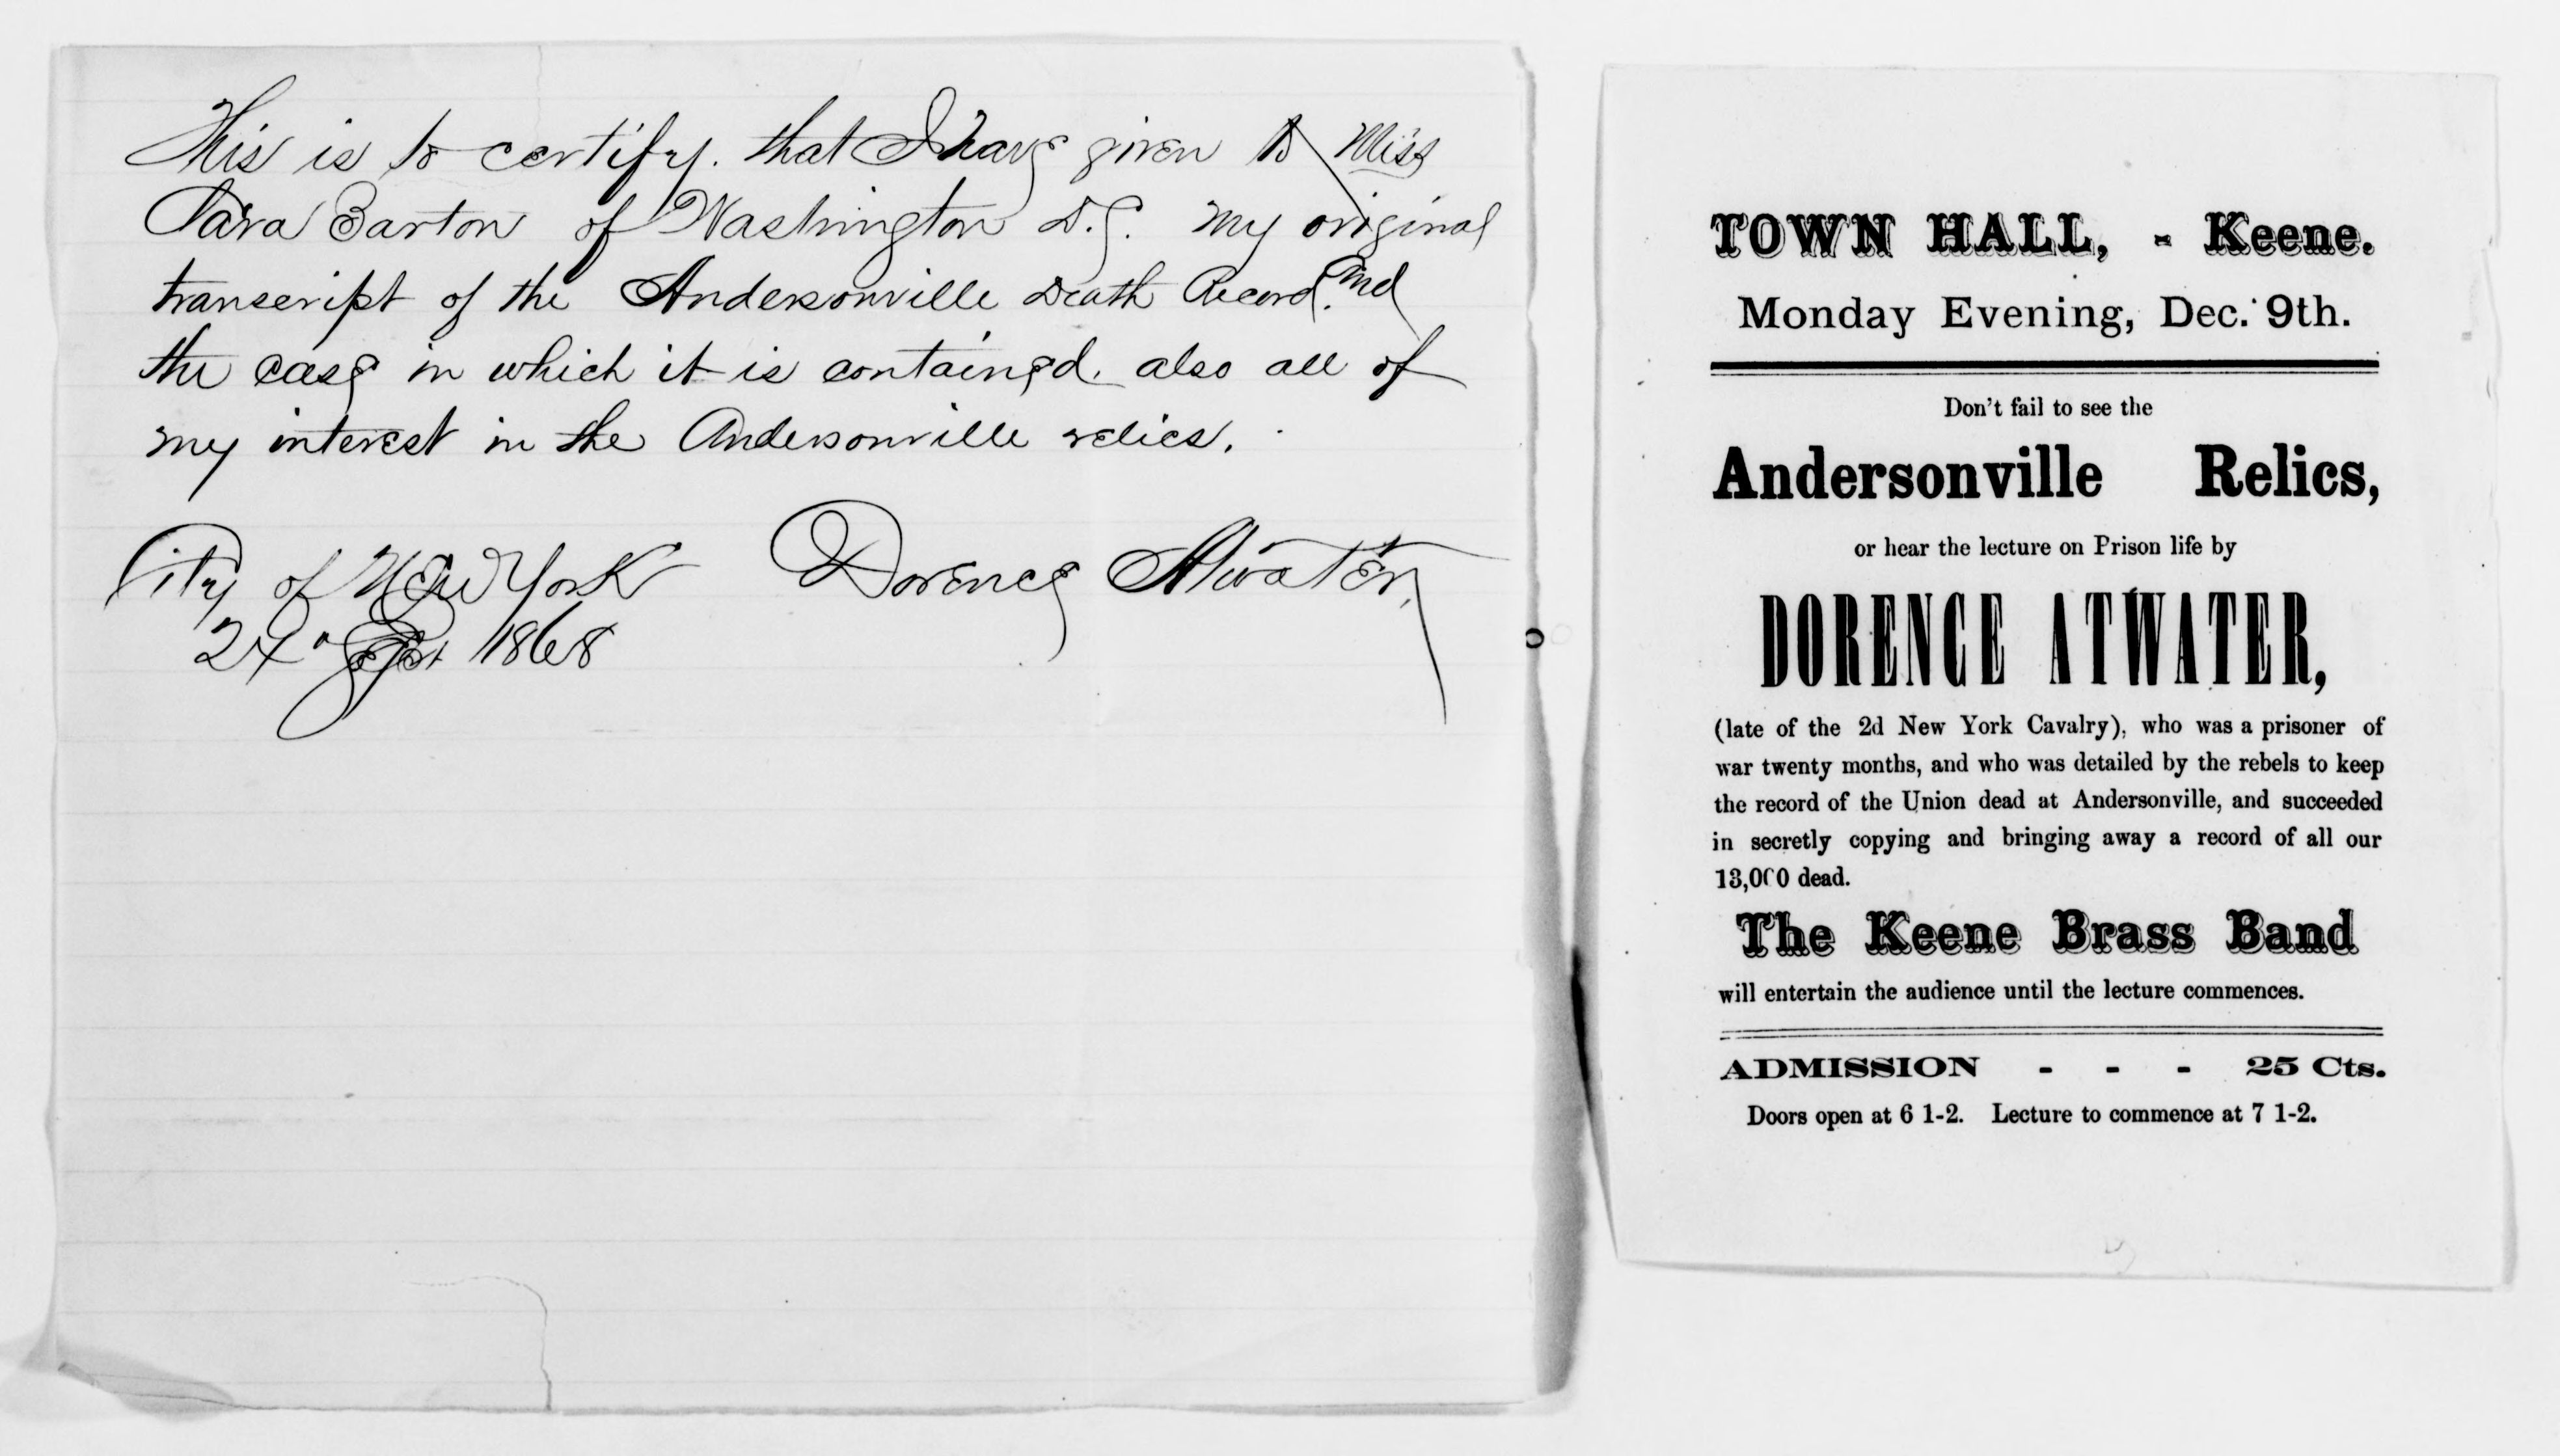 This is to certify. that I have given to Miss
Clara Barton of Washington D.C. my original
transcript of the Andersonville Death Record. and
the case in which it is contained. also all of
my interest in the Andersonville relics.
City of New York Dorence Atwater,
1868
TOWN HALL, - Keene.
Monday Evening, Dec. 9th.
Don't fail to see the
Andersonville Relics,
or hear the lecture on Prison life by
DORENCE ATWATER,
(late of the 2d New York Cavalry), who was a prisoner of
war twenty months, and who was detailed by the rebels to keep
the record of the Union dead at Andersonville, and succeeded
in secretly copying and bringing away a record of all our
13,000 dead.
The Keene Brass Band
will entertain the audience until the lecture commences.
ADMISSION - - - 25 Cts.
Doors open at 6 1-2. Lecture to commence at 7 1-2.